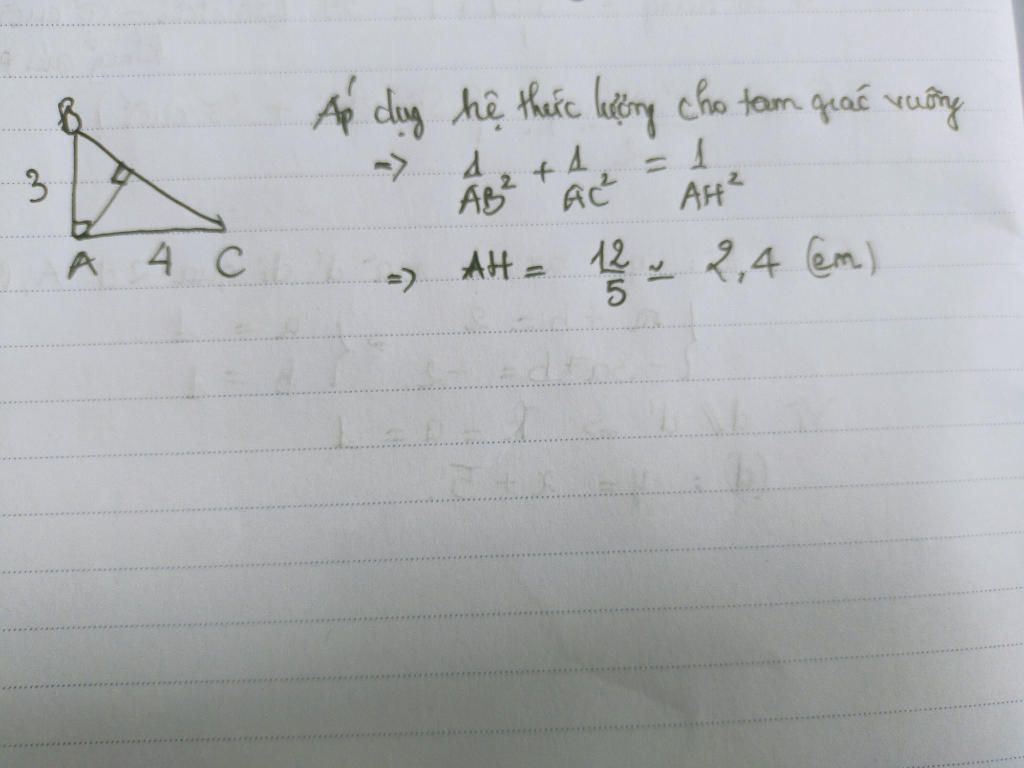 B
Áp dụg hệ thức lượng cho tam giác vuông
3
=> 1/AB² + 1/AC² = 1/AH²
A 4 C
=> AH = 12/5 = 2,4 (cm)